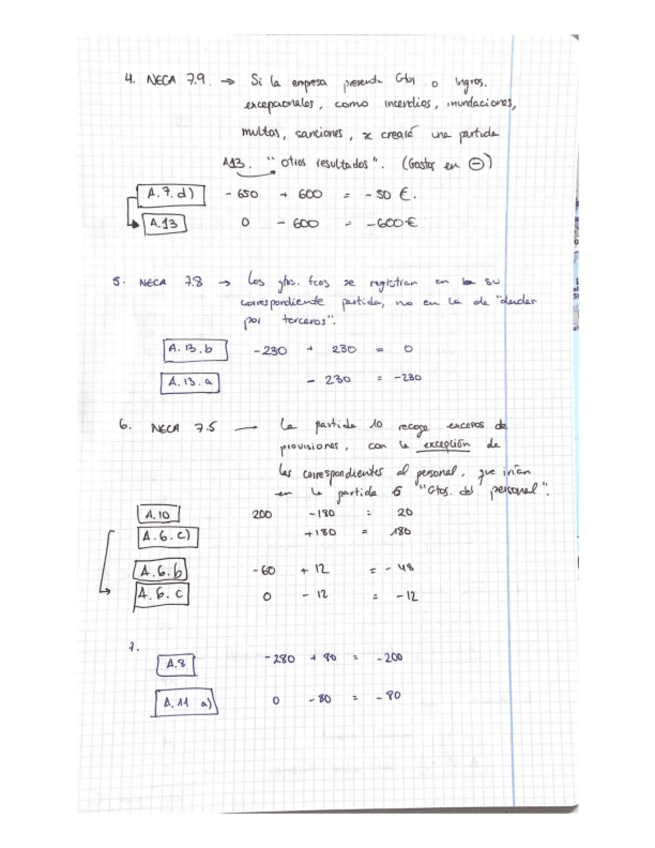 4. NECA 7.9. → Si la empresa presenta Gtos o Ingros.
excepcionales, como incendios, inundaciones,
multas, sanciones, se creará una partida
A13. "otros resultados". (Gastos en ⊖)
A.7.d) -650 + 600 = -50 €.
A.13 0 - 600 = -600€
5. NECA 7.8 → Los gtos. fcos se registran en su
correspondiente partida, no en la de "deudas
por terceros".
A.13.b -230 + 230 = 0
A.13.a - 230 = -230
6. NECA 7.5 — La partida 10 recoge excesos de
provisiones, con la excepción de
las correspondientes al personal, que irían
en la partida 6 "Gtos. del personal".
A.10 200 -180 = 20
A.6.c) +180 = 180
A.6.b -60 + 12 = -48
A.6.c 0 - 12 = -12
7.
A.8 -280 + 80 = -200
A.11 a) 0 - 80 = -80